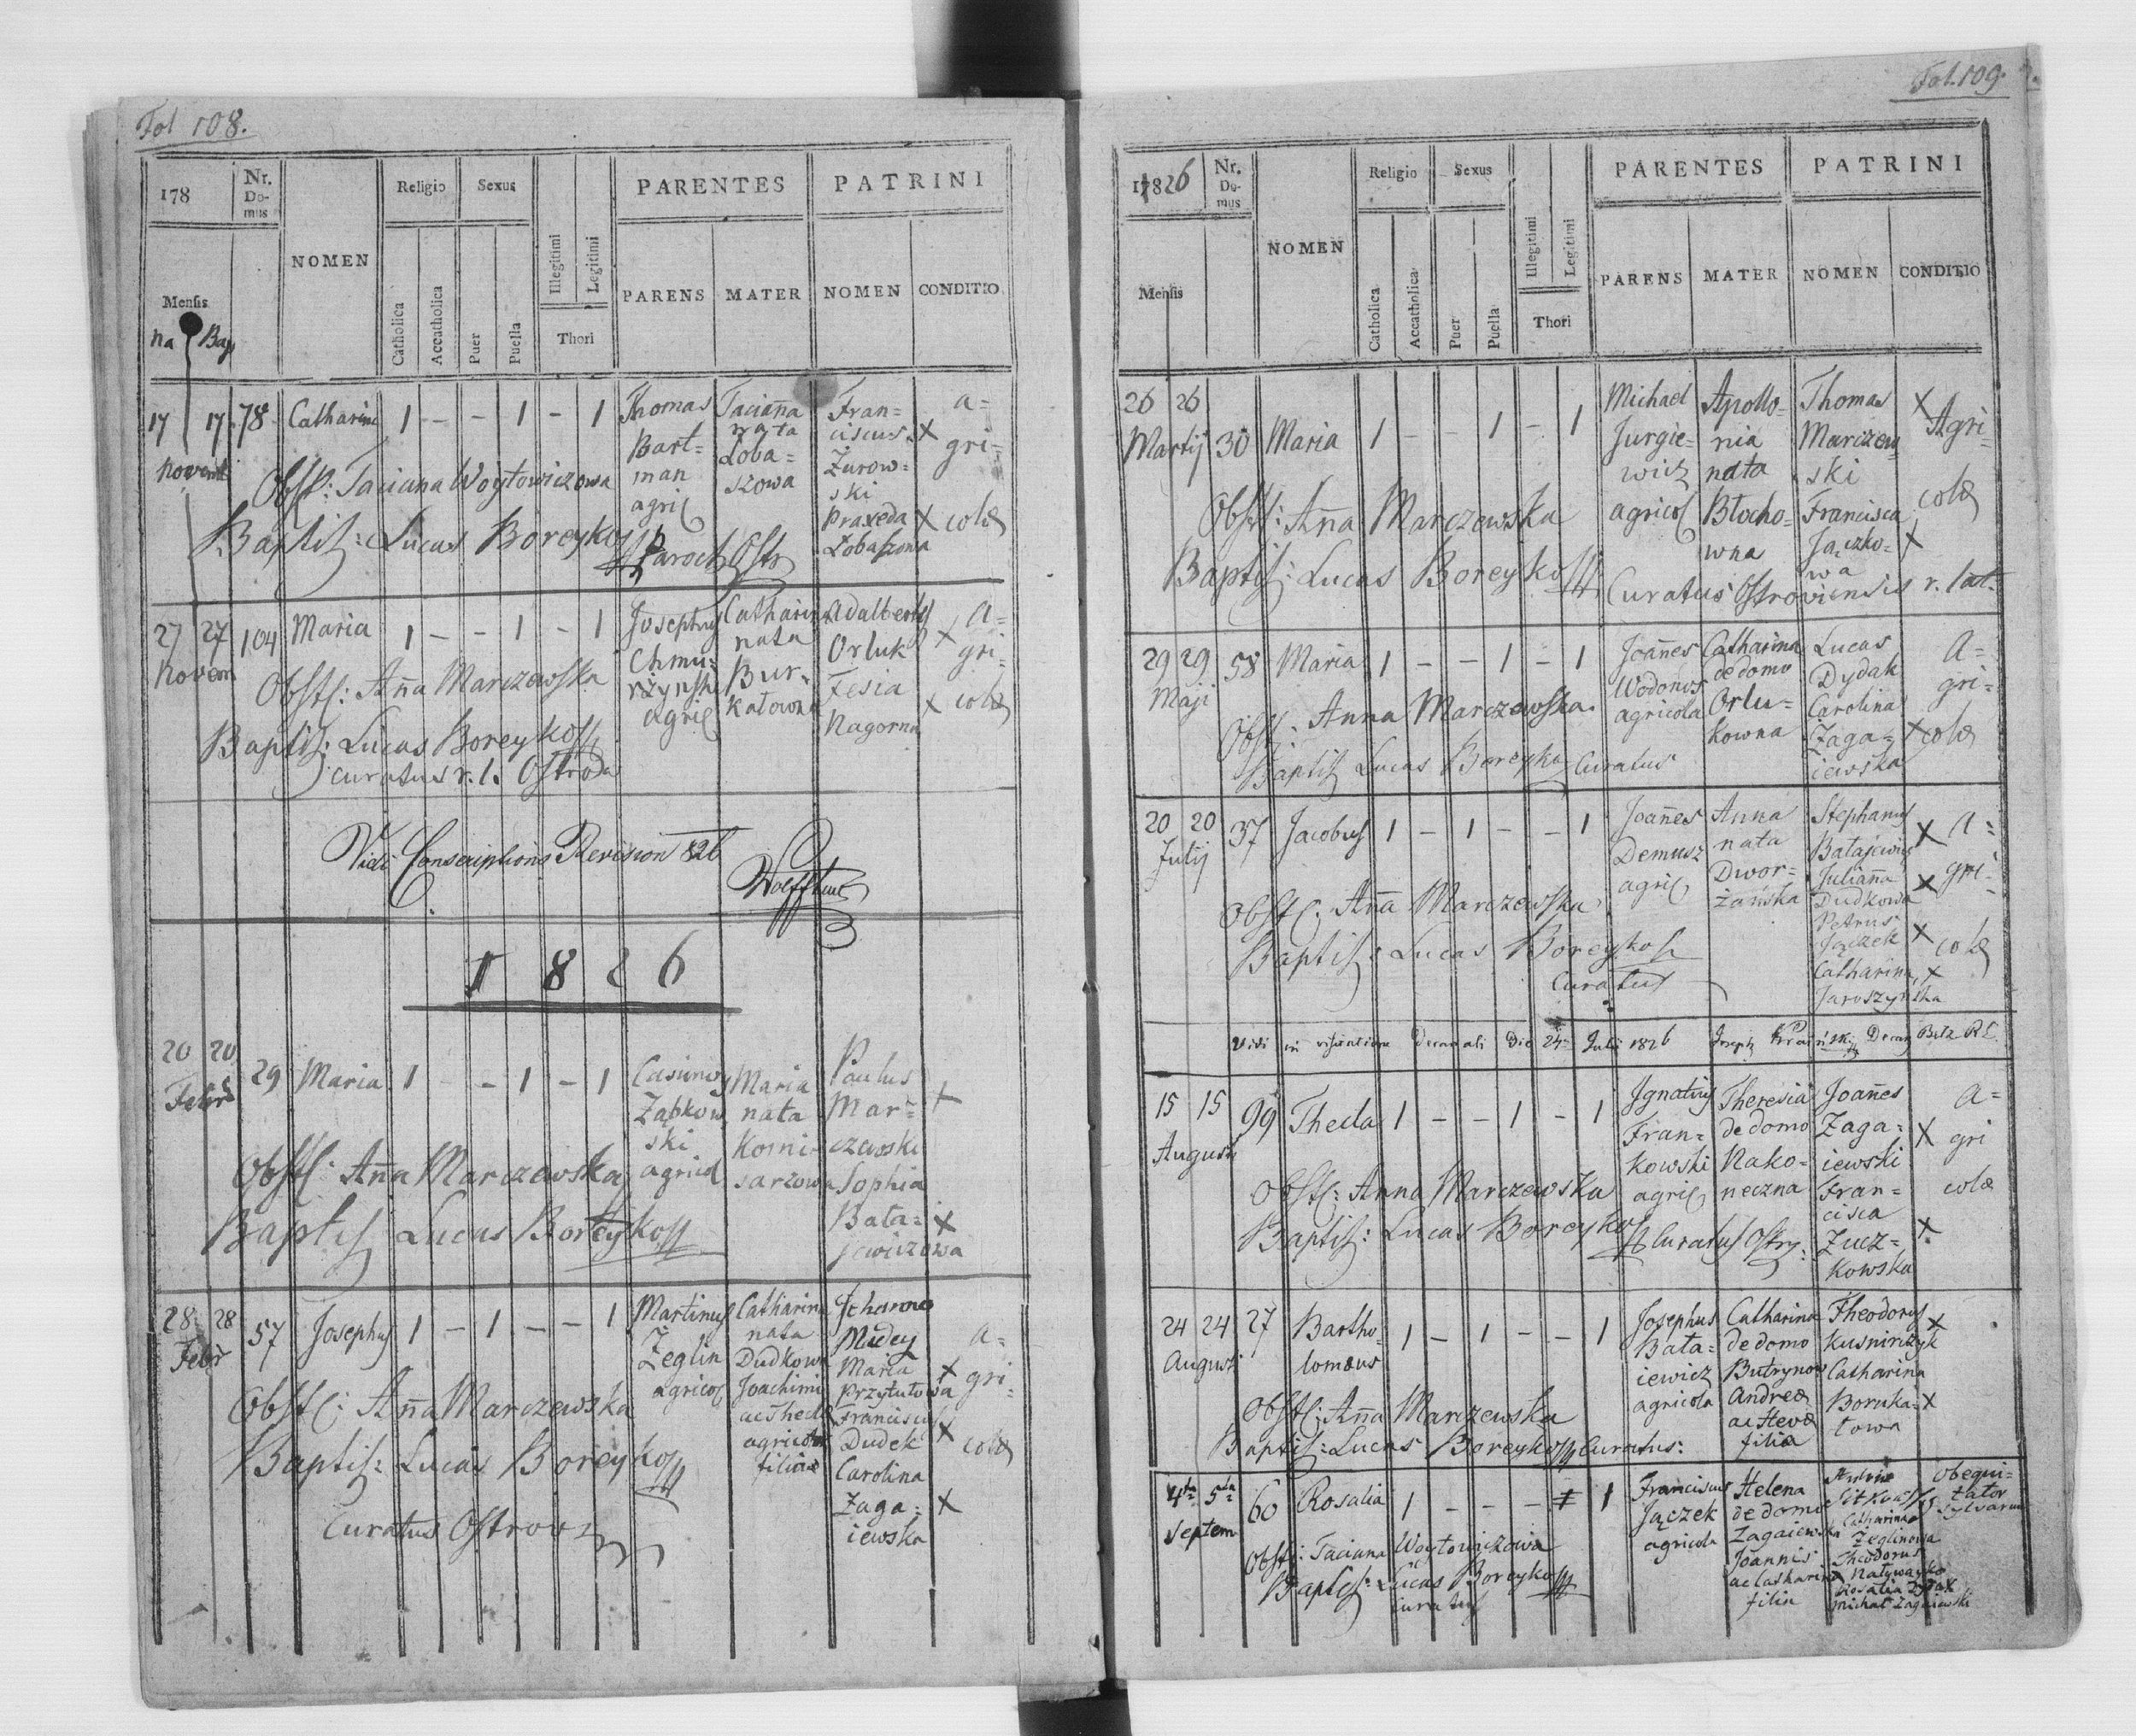 Fol 108.
178
Nr. Do-mus
NOMEN
Religio
Sexus
PARENTES
PATRINI
Mensis
Catholica
Accatholica
Puer
Puella
Illegitimi
Legitimi
Thori
PARENS
MATER
NOMEN
CONDITIO
na Bap
17 17 78 Catharina 1 – – 1 – 1
Novemb
Thomas
Bart=
man
agric
Tacianna
nata
Łoba=
szowa
Fran=
ciscus X
Żurow=
ski
Praxeda X
Łobaszowa
a=
gri=
colæ
Obst: Taciana Woytowiczowa
Baptis: Lucas Boreyko
Paroch Ostr
27 27 104 Maria 1 – – 1 – 1
Novem
Josephus
Chmu=
rżynski
agric
Catharina
nata
Bur=
katowna
Adalbertus
Orluk X
Tesia
Nagorna X
a=
gri=
colæ
Obst: Anna Marczewska
Baptis: Lucas Boreyko
curatus r. l.
Vidi Conscriptions Revision 826
1826
20 20 29 Maria 1 – – 1 – 1
Febr
Casimirus
Ząbkow
ski
agricol
Maria
nata
Kośni
sarzowa
Paulus
Mar=
czewski
Sophia
Bata=
jewiczowa
X
X
Obst: Anna Marczewska
Baptis Lucas Boreyko
28 28 57 Josephus 1 – 1 – – 1
Febr
Martinus
Żeglin
agricol
Catharina
nata
Dudkowa
Joachimi
ac Theclæ
agricolæ
filia
Johannes
Mudey
Maria X
Przytułowa
Franciscus
Dudek X
Carolina
Zaga=
iewska X
a=
gri=
colæ
Obst: Anna Marczewska
Baptis: Lucas Boreyko
Curatus Ostrov
Fol. 109.
1826
Nr. Do-mus
NOMEN
Religio
Sexus
PARENTES
PATRINI
Mensis
Catholica
Accatholica
Puer
Puella
Illegitimi
Legitimi
Thori
PARENS
MATER
NOMEN
CONDITIO
26 26
Martij 30 Maria 1 – – 1 – 1
Michael
Jurgie=
wicz
agricol
Apollo=
nia
nata
Błocho=
wna
Thomas X
Marczew
ski
Francisca
Jączko= X
wa
Agri=
colæ
Obst: Anna Marczewska
Baptis: Lucas Boreyko
Curatus Ostroviensis r. lat.
29 29 58 Maria 1 – – 1 – 1
Maji
Joannes
Wodonos
agricola
Catharina
de domo
Orlu=
kowna
Lucas
Dydak
Carolina
Zaga= X
iewska
A=
gri=
colæ
Obst: Anna Marczewska
Baptis Lucas Boreyko Curatus
20 20 37 Jacobus 1 – 1 – – 1
Julij
Joannes
Demusz
agric
Anna
nata
Dwor=
żańska
Stephanus
Batajewicz X
Julianna
Dudkowa X
Petrus
Jączek X
Catharina X
Jaroszyńska
A=
gri=
colæ
Obst: Anna Marczewska
Baptis: Lucas Boreyko
Curatus
Vidi in visitatione Decanali Die 24 Julii 1826 Joseph Kraiński Decan Belz R. L.
15 15 99 Thecla 1 – – 1 – 1
August
Ignatius
Fran=
kowski
agric
Theresia
de domo
Nako=
neczna
Joannes
Zaga= X
iewski
Fran=
cisca
Zucz= X
kowska
a=
gri
colæ
Obst: Anna Marczewska
Baptis: Lucas Boreyko Curatus Ostrv:
24 24 27 Bartho=
August lomæus 1 – 1 – – 1
Josephus
Bata=
iewicz
agricola
Catharina
de domo
Butrynow
Andreæ
ac Hevæ
filia
Theodorus X
Kusnirczyk
Catharina
Boruka= X
towa
Obst: Anna Marczewska
Baptis: Lucas Boreyko Curatus:
4ta 5ta 60 Rosalia 1 – – – 1 1
Septem
Franciscus
Jączek
agricola
Helena
de domo
Zagaiewska
Joannis
ac Catharina
filia
Catharina
Żeglinowa
Theodorus
Rosalia
Michał Zagaiewski
Obequi=
tator
sylvarum
Obst: Taciana Woytowiczowa
Baptis: Lucas Boreyko
curatus